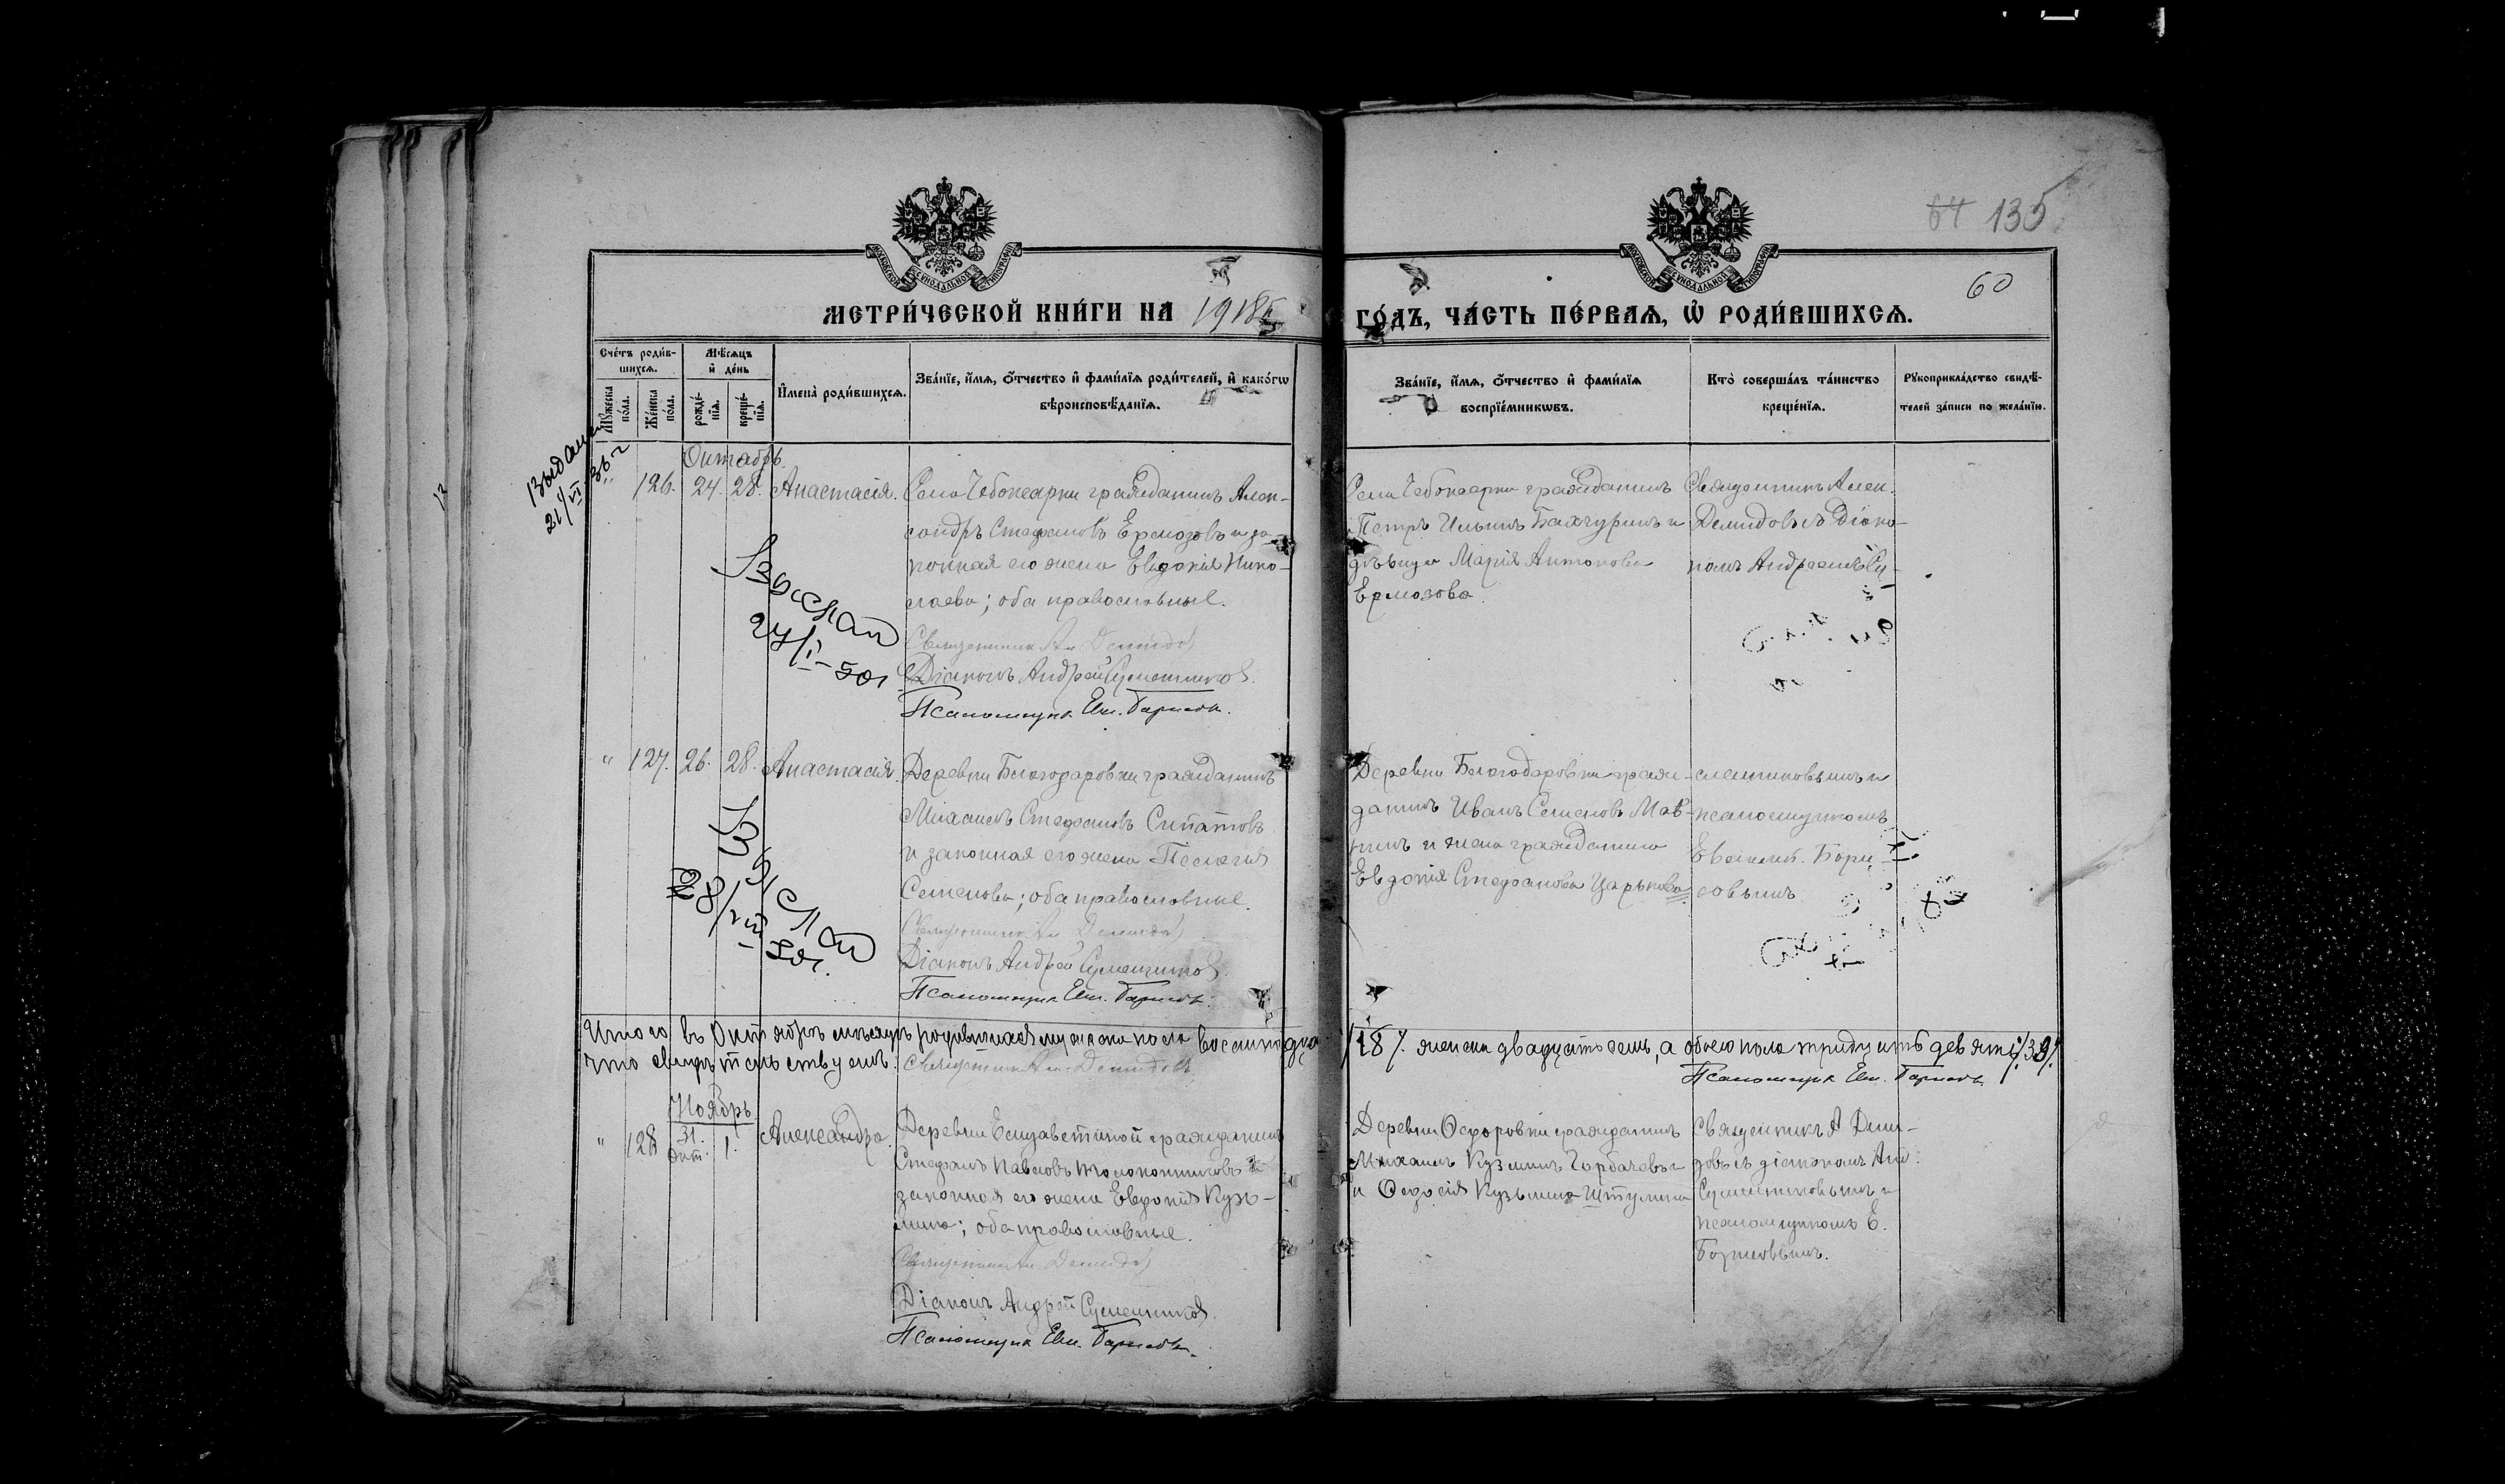 64 135
60
МОСКОВСКОЙ СѴНОДАЛЬНОЙ ТИПОГРАФІИ
МОСКОВСКОЙ СѴНОДАЛЬНОЙ ТИПОГРАФІИ
МЕТРИ́ЧЕСКОЙ КНИ́ГИ НА 1918
ГО́ДЪ, ЧА́СТЬ ПЕ́РВАѦ, Ѡ҆ РОДИ́ВШИХСѦ.
Сче́тъ роди́в-
шихсѧ.
Мѣ́сѧцъ
и҆ де́нь
Мꙋ́жеска
по́ла.
Же́нска
по́ла.
рожде́-
нїѧ.
креще́-
нїѧ.
И҆мена̀ роди́вшихсѧ.
Зва́нїе, и҆́мѧ, ѻ҆́тчество и҆ фами́лїѧ роди́телей, и҆ како́гѡ
вѣроисповѣ́данїѧ.
Зва́нїе, и҆́мѧ, ѻ҆́тчество и҆ фами́лїѧ
воспрїе́мникѡвъ.
Кто̀ соверша́лъ та́инство
креще́нїѧ.
Рꙋкоприкла́дство свидѣ́-
телей за́писи по жела́нїю.
Октябрь
126. 24. 28. Анастасія.
Села Чебоксарки гражданинъ Алек-
сандръ Стефановъ Ермозовъ и за-
конная его жена Евдокія Нико-
лаева; оба православные.
Священникъ Ал Демидов
Діаконъ Андрей
Псаломщикъ Евл. Борисовъ.
Села Чебоксарки гражданинъ
Петръ Ильинъ Бахчуринъ и
дѣвица Марія Антонова
Ермозова.
Священникъ Алек.
Демидовъ съ Діако-
номъ Андреемъ Су-
127. 26. 28. Анастасія.
Деревни Благодаровки гражданинъ
Михаилъ Стефановъ Сипатовъ
и законная его жена Пелагія
Семенова; оба православные.
Священникъ Ал Демидов
Діаконъ Андрей
Псаломщикъ Евл. Борисовъ.
Деревни Благодаровки граж-
данинъ Иванъ Семеновъ Мав-
ринъ и жена гражданина
Евдокія Стефанова Царькова
и
псаломщикомъ
Борис-
совымъ
Итого въ Октябрѣ мѣсяцѣ родившихся мужеска пола
/18/. женска двадцать семь, а обоего пола тридцать девять /39/.
что свидѣтельствуемъ: Священникъ Ал. Демидовъ
Псаломщикъ Евл. Борисовъ
Ноябрь
128 31. окт. 1. Александра.
Деревни Елизаветиной гражданинъ
Стефанъ Павловъ Толоконниковъ и
законная его жена Евдокія Кузь-
мина; оба православные.
Священникъ Ал. Демидов
Діаконъ Андрей
Псаломщикъ Евл. Борисовъ.
Деревни Ѳедоровки гражданинъ
Михаилъ Кузьминъ Горбачевъ
и Ѳедосія Кузьмина
Священникъ А Деми-
довъ съ діакономъ Анд.
и
псаломщикомъ Е.
Борисовымъ.